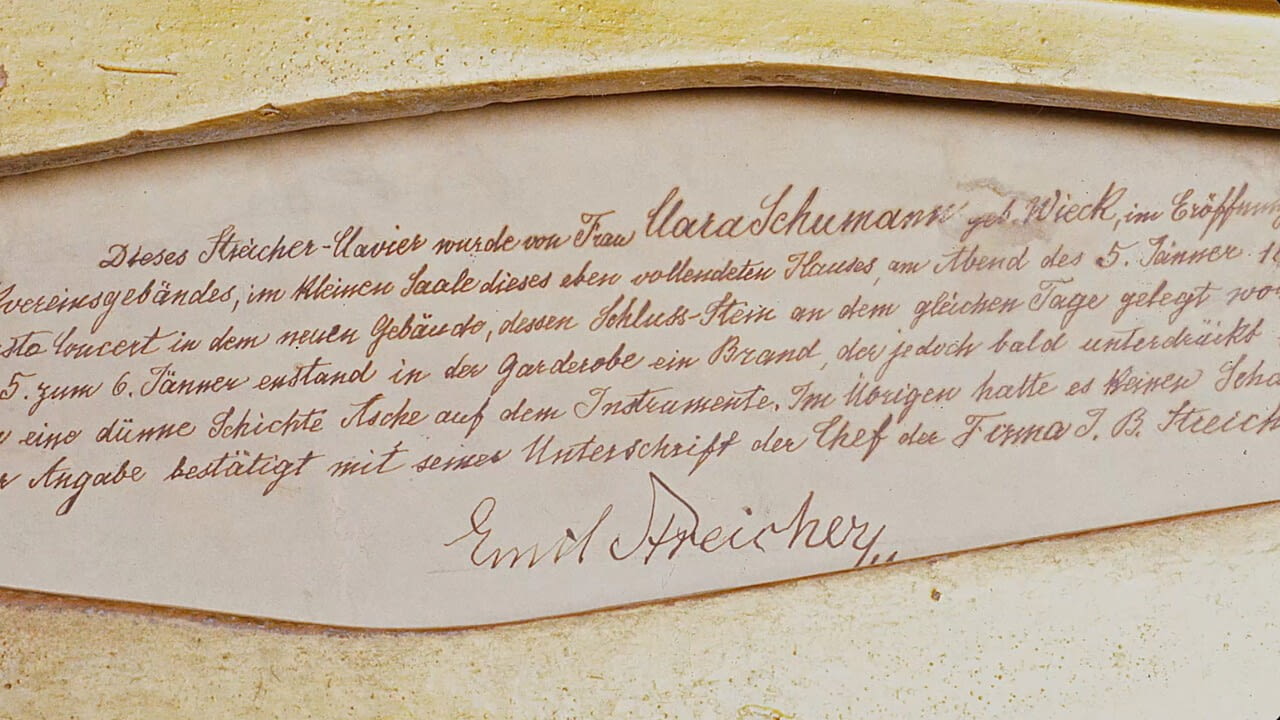 Dieses Streicher-Clavier wurde von Frau Clara Schumann geb. Wieck, im Eröffnung
vereinsgebäudes, im kleinen Saale dieses eben vollendeten Hauses, am Abend des 5. Jänner 18
ste Concert in dem neuen Gebäude, dessen Schluss-Stein an dem gleichen Tage gelegt wo
5. zum 6. Jänner enstand in der Garderobe ein Brand, der jedoch bald unterdrückt
eine dünne Schichte Asche auf dem Instrumente. Im Übrigen hatte es keinen Scha
r Angabe bestätigt mit seiner Unterschrift der Chef der Firma J. B. Streich
Emil Streicher